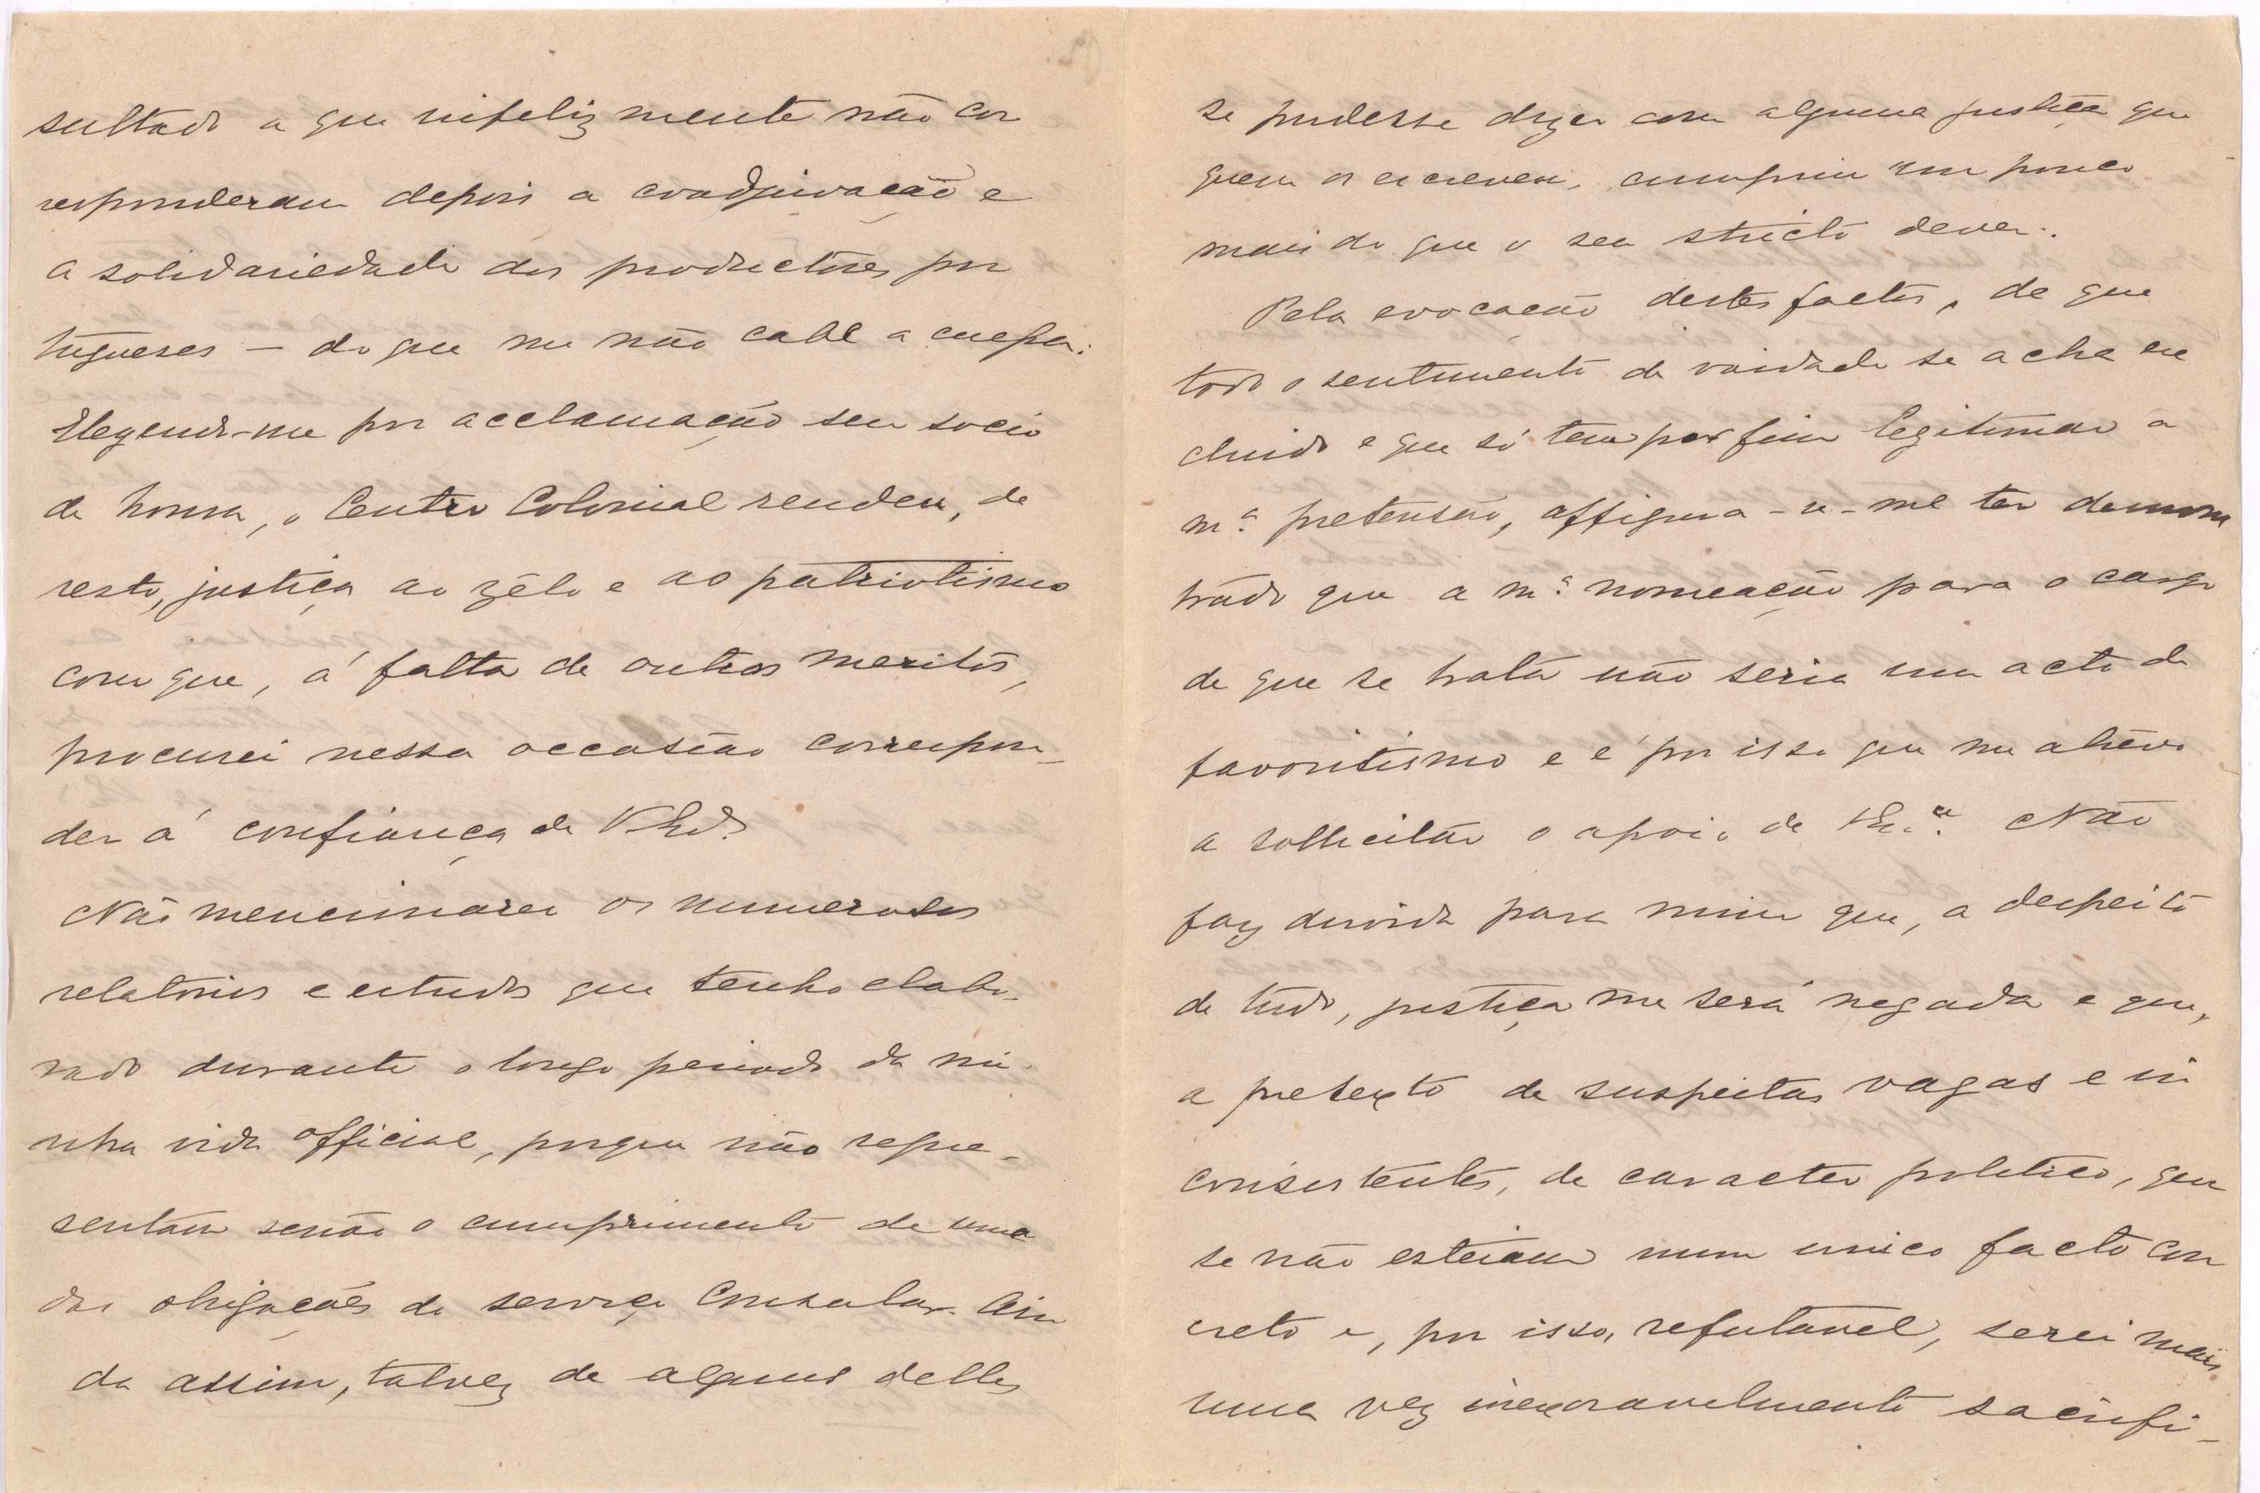 sultado a que infelizmente não cor
responderam depois a coadjuvação e
a solidariedade dos productores por
tugueses — do que me não cabe a culpa.
Elegendo-me por acclamação seu socio
de honra, o Centro Colonial rendeu, de
resto, justiça ao zêlo e ao patriotismo
com que, á falta de outros meritos,
procurei nessa occasião correspon-
der á confiança de V. Ex.as
Não mencionarei os numerosos
relatorios e estudos que tenho elabo-
rado durante o longo periodo da mi-
nha vida official, porque não repre-
sentam senão o cumprimento de uma
das obrigações do serviço Consular. Ain
da assim, talvez de alguns delles
se pudesse dizer com alguma justiça que
quem os escreveu, cumpriu um pouco
mais do que o seu stricto dever.
Pela evocação destes factos, de que
todo o sentimento de vaidade se acha ex
cluido e que só tem por fim legitimar a
m.ª pretensão, affigura-se-me ter demons
trado que a m.ª nomeação para o cargo
de que se trata não seria um acto de
favoritismo e é por isso que me atrevo
a sollicitar o apoio de V. Ex.ª. Não
faz duvida para mim que, a despeito
de tudo, justiça me será negada e que,
a pretexto de suspeitas vagas e in
consistentes, de caracter politico, que
se não esteiam num unico facto con
creto e, por isso, refutavel, serei mais
uma vez inexoravelmente sacrifi-